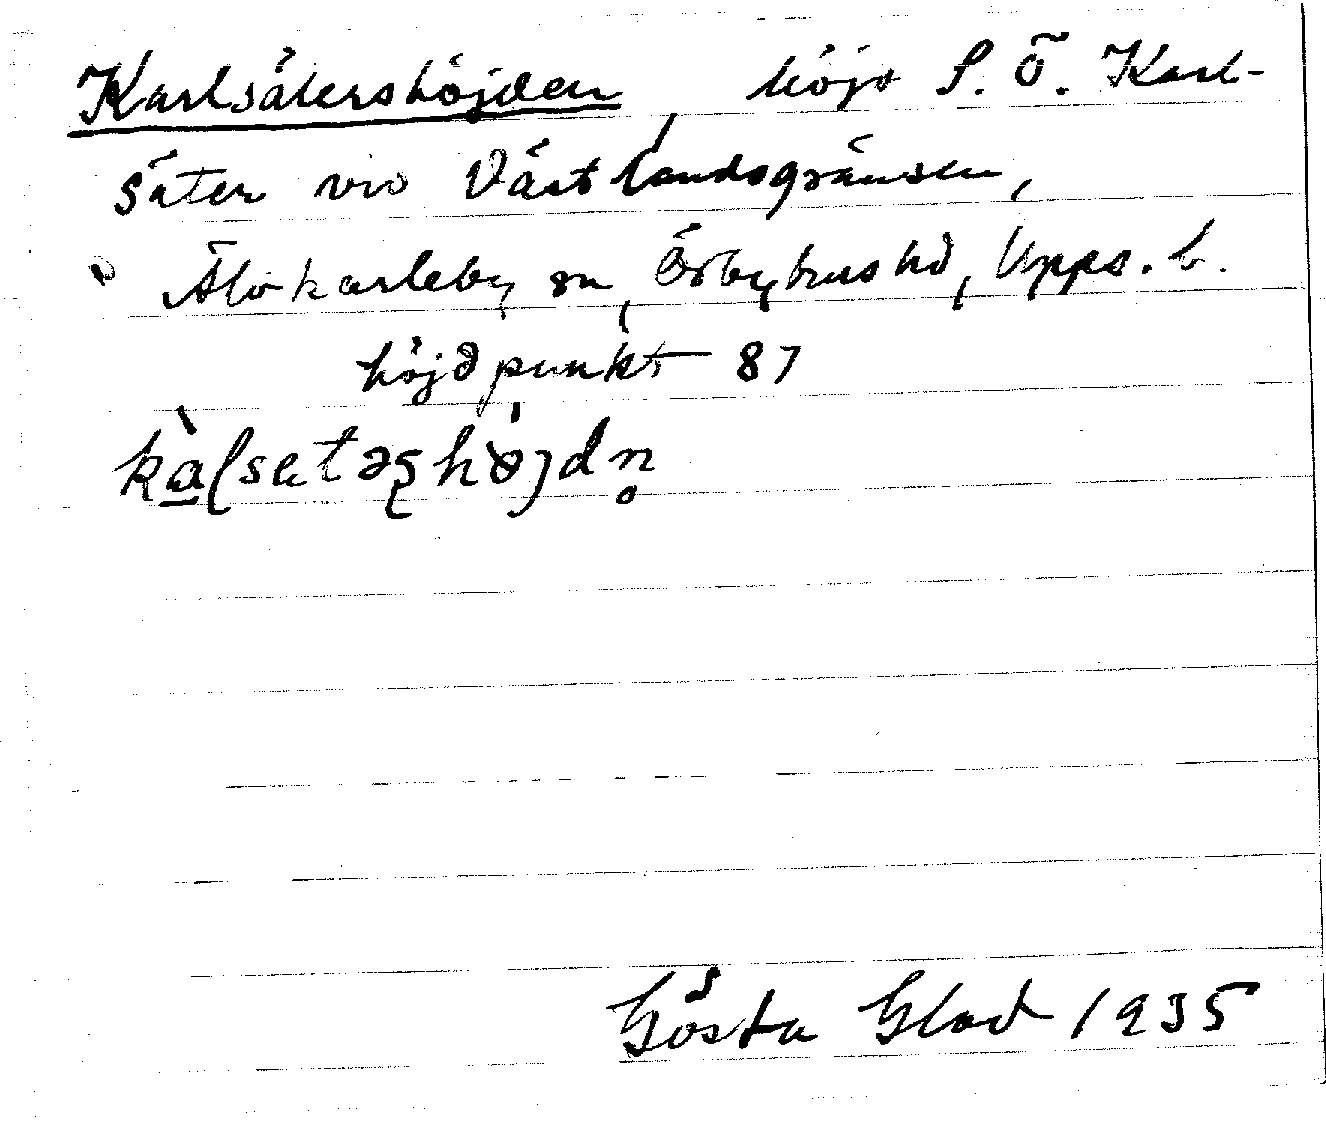 Karlsätershöjden höjd S. Ö. Karl-
säter vid Västlandsgränsen,
Älvkarleby sn, Örbyhus hd, Upps. l.
höjdpunkt 87
Gösta Blad 1935